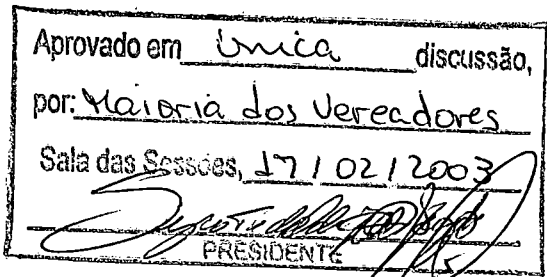 Aprovado em única discussão,
por: Maioria dos Vereadores
Sala das Sessões, 17 / 02 / 2003
PRESIDENTE